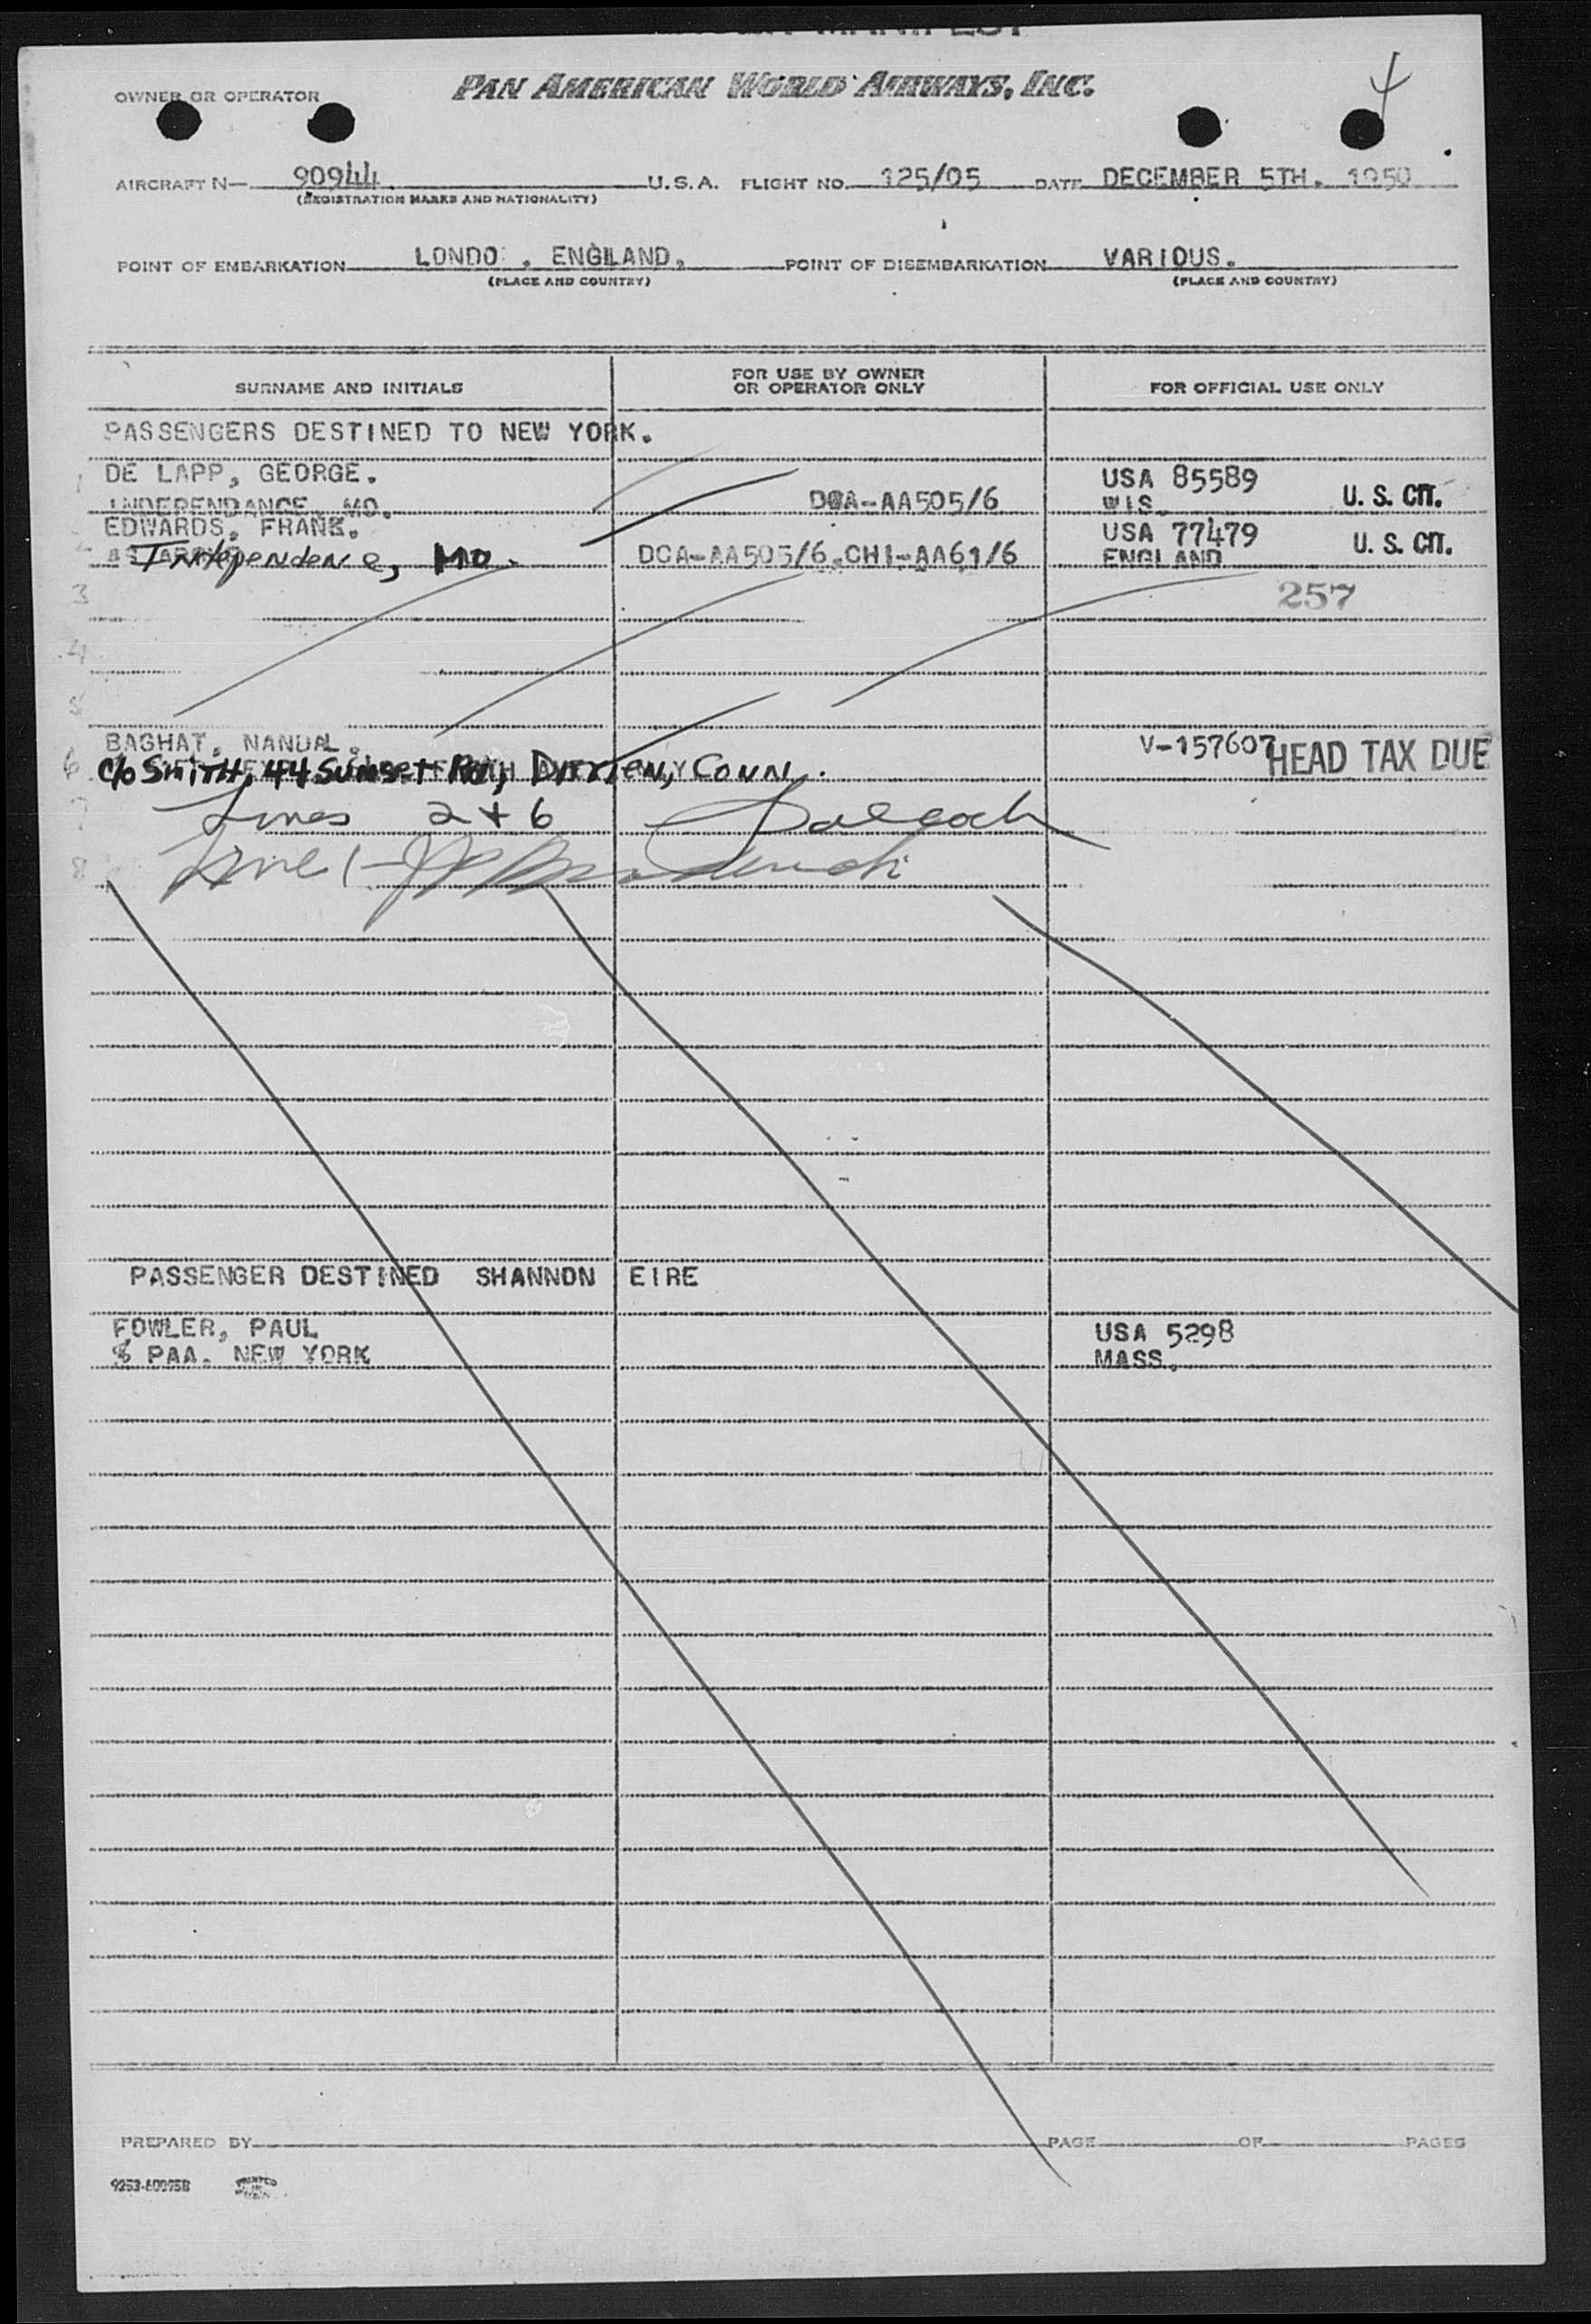 MANIFEST
4
OWNER OR OPERATOR PAN AMERICAN WORLD AIRWAYS, INC.
AIRCRAFT N— 90944. U.S.A. FLIGHT NO. 125/05 DATE DECEMBER 5TH. 1950
(REGISTRATION MARKS AND NATIONALITY)
POINT OF EMBARKATION LONDO , ENGLAND. POINT OF DISEMBARKATION VARIOUS.
(PLACE AND COUNTRY) (PLACE AND COUNTRY)
SURNAME AND INITIALS FOR USE BY OWNER OR OPERATOR ONLY FOR OFFICIAL USE ONLY
PASSENGERS DESTINED TO NEW YORK.
1 DE LAPP, GEORGE. USA 85589
INDEPENDANCE, MO. DCA-AA505/6 WIS. U. S. CIT.
2 EDWARDS, FRANK. USA 77479
Independence, Mo. DCA-AA505/6.CHI-AA61/6 ENGLAND U. S. CIT.
3 257
4
5
BAGHAT, NANDAL. V-157607
6 c/o Smith, 44 Sunset Rd, Darien, Conn. HEAD TAX DUE
7 Lines 2 + 6
8 Line 1-
PASSENGER DESTINED SHANNON EIRE
FOWLER, PAUL USA 5298
% PAA. NEW YORK MASS.
PREPARED BY PAGE OF PAGES
PRINTED IN